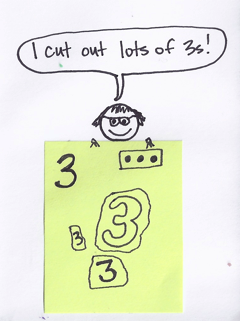 I cut out lots of 3s!
3
3
3
3